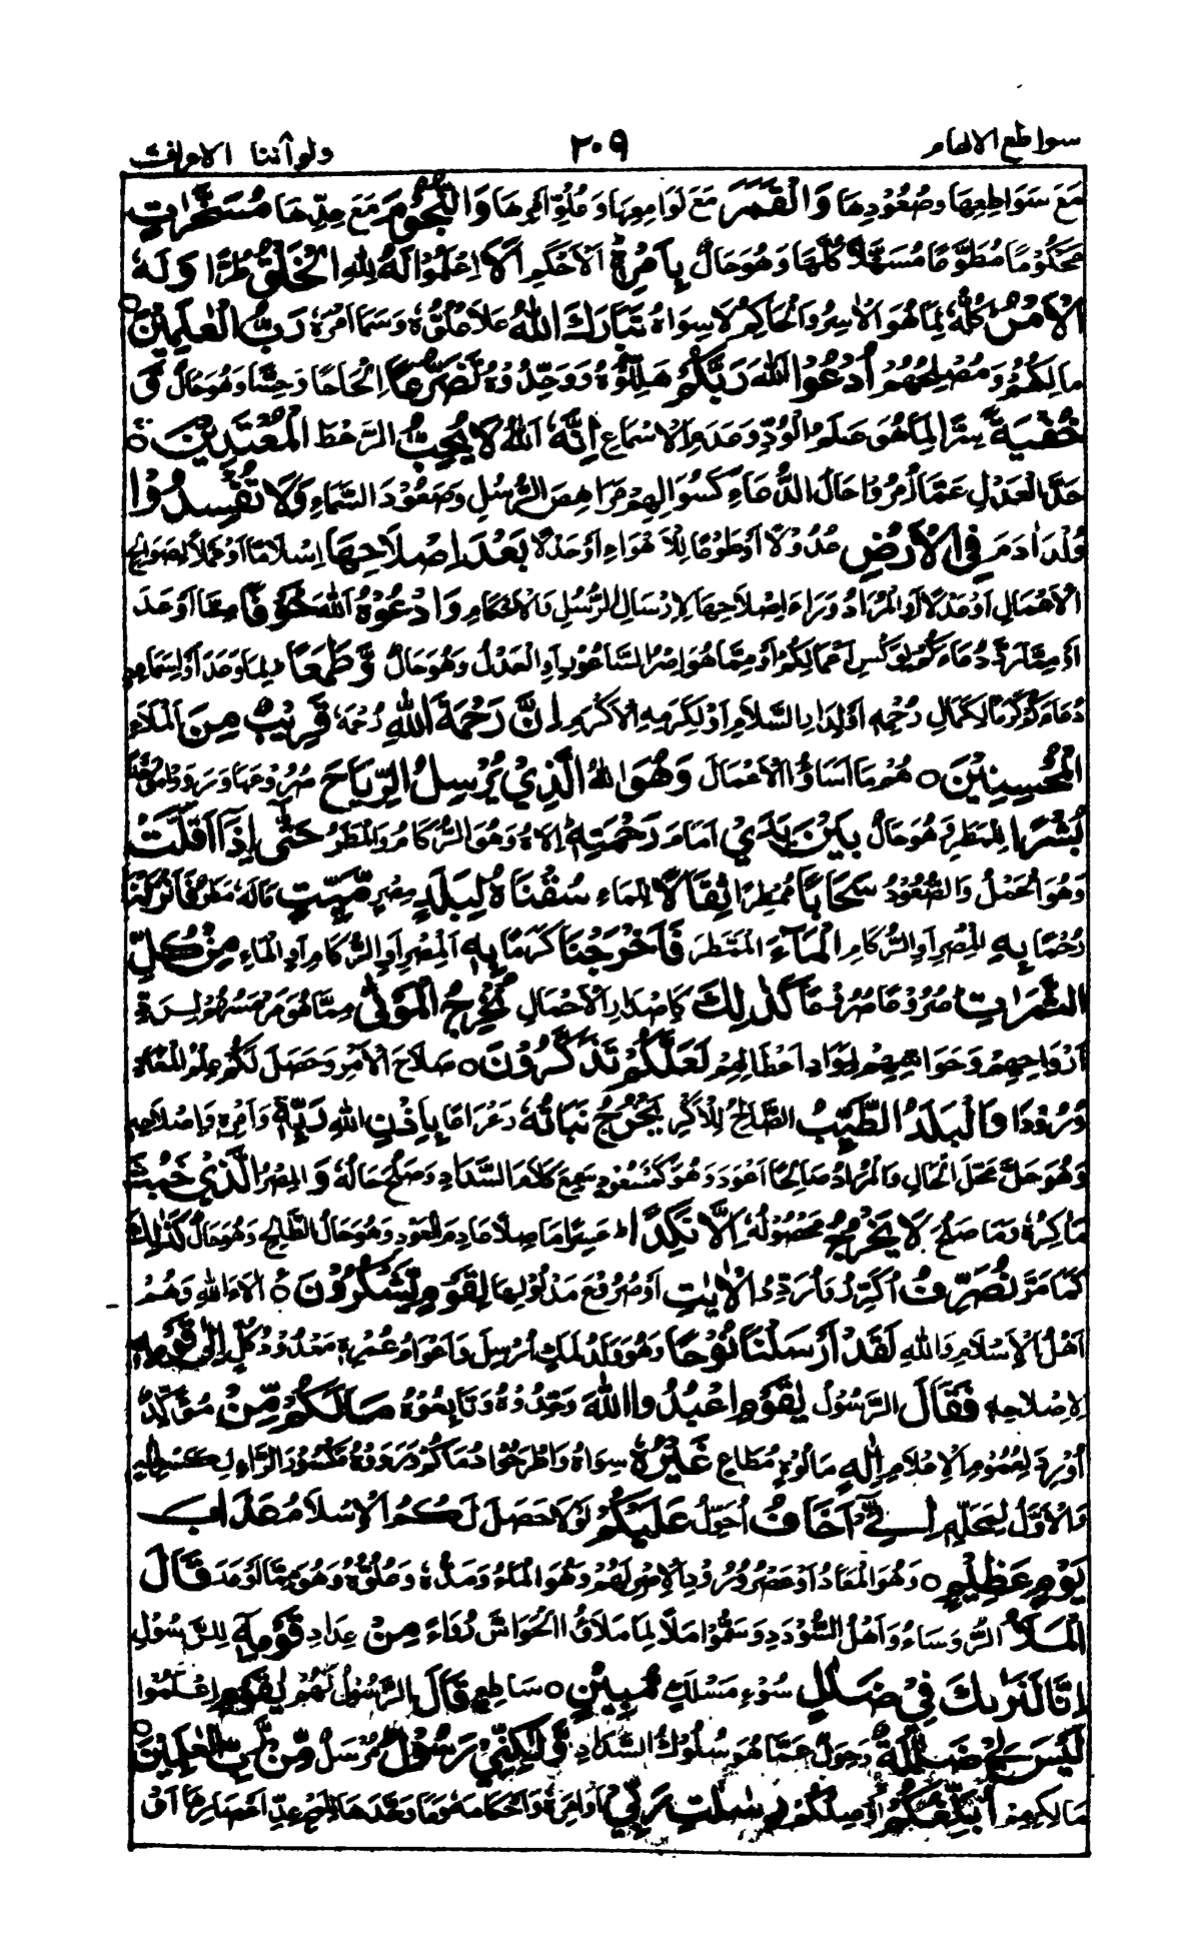 سواطع الالهام ٢٠٩ ولو اننا الاعراف
مَعَ سَوَاطِعِهَا وَصُعُوْدِهَا وَالْقَمَرَ مَعَ لَوَامِعِهَا وَعُلُوِّ اَمْرِهَا وَالنُّجُوْمَ مَعَ حِدِّهَا مُسَخَّرٰتٍ
مَحْكُوْمًا مُطَوَّعًا مُسَهَّلًا كُلُّهَا وَهُوَ حَالٌ بِاَمْرِهٖ الْاَحْكَمِ اَلَا اعْلَمُوْا لَهُ لِلّٰهِ الْخَلْقُ طُرًّا وَلَهُ
الْاَمْرُ كُلُّهٗ لِمَا هُوَ الْاٰمِرُ وَالْحَاكِمُ لَا سِوَاهُ تَبَارَكَ اللّٰهُ عَلَا عُلُوُّهٗ وَسَمَا اَمْرُهٗ رَبُّ الْعٰلَمِيْنَ
مَالِكُهُمْ وَمُصْلِحُهُمْ اُدْعُوا اللّٰهَ رَبَّكُمْ هَلِّلُوْهُ وَوَحِّدُوْهُ تَضَرُّعًا اِلْحَاحًا وَحِسًّا وَهُوَ حَالٌ وَّ
خُفْيَةً سِرًّا لِمَا هُوَ عَلَمُ الْوُدِّ وَعَدَمِ الْاِسْمَاعِ اِنَّهٗ اللّٰهُ لَا يُحِبُّ الرَّهْطَ الْمُعْتَدِيْنَ
حَدَّ الْعَدْلِ عَمَّا اُمِرُوْا حَالَ الدُّعَاءِ كَسُوَالِهِمْ مَرَاهِصَ الرُّسُلِ وَصُعُوْدَ السَّمَاءِ وَلَا تُفْسِدُوْا
وُلْدَ اٰدَمَ فِي الْاَرْضِ عُدُوْلًا اَوْ طَوْعًا لِلْاَهْوَاءِ اَوْ حَدْلًا بَعْدَ اِصْلَاحِهَا اِسْلَامًا اَوْ عَمَلًا لِصَوَالِحِ
الْاَعْمَالِ اَوْ عَدْلًا اَوِ الْمُرَادُ وَرَاءَ اِصْلَاحِهَا لِاِرْسَالِ الرُّسُلِ وَالْاَحْكَامِ وَادْعُوْهُ اللّٰهَ خَوْفًا مِمَّا اَوْعَدَ
اَوْ مِمَّا رَدَّ دُعَاءَكُمْ لِوَكْسِ اَعْمَالِكُمْ اَوْ مِمَّا هُوَ اِصْرُ السَّاعُوْرِ اَوِ الْعَدْلُ وَهُوَ حَالٌ وَّطَمَعًا لِمَا وَعَدَ اَوْ لِسَمَاعِ
دُعَاءِكُمْ كَرَمًا لِكَمَالِ رُحْمِهٖ اَوْ لِدَارِ السَّلَامِ اَوْ لِكَرَمِهِ الْاَكْرَمِ اِنَّ رَحْمَةَ اللّٰهِ رُحْمَهٗ قَرِيْبٌ مِنَ الْمَلَاءِ
الْمُحْسِنِيْنَ هُمْ مَا اَسَاؤُا الْاَعْمَالَ وَهُوَ اللّٰهُ الَّذِيْ يُرْسِلُ الرِّيَاحَ
بُشْرًا لِلْمَطَرِ هُوَ حَالٌ بَيْنَ يَدَيْ اَمَامَ رَحْمَتِهٖ اٰلَاءِهٖ وَهُوَ الرُّكَامُ وَالْمَطَرُ حَتّٰى اِذَا اَقَلَّتْ
وَهُوَ الْحَمْلُ وَالصُّعُوْدُ سَحَابًا مُمْطِرًا ثِقَالًا لِلْمَاءِ سُقْنٰهُ لِبَلَدٍ مِصْرٍ مَّيِّتٍ مَا لَهٗ مَطَرٌ فَاَنْزَلْنَا
رُحْمًا بِهِ الْمِصْرِ اَوِ الرُّكَامِ الْمَآءَ الْمَطَرَ فَاَخْرَجْنَا كَرَمًا بِهٖ الْمِصْرِ اَوِ الرُّكَامِ اَوِ الْمَاءِ مِنْ كُلِّ
الثَّمَرٰتِ صُرُوْعًا صُرُوْعًا كَذٰلِكَ كَاِصْدَارِ الْاَحْمَالِ نُخْرِجُ الْمَوْتٰى مِمَّا هُوَ مَرْمَسُهُمْ لِرَدِّ
اَرْوَاحِهِمْ وَحَوَاسِّهِمْ لِمَوَادِ اَعْطَالِهِمْ لَعَلَّكُمْ تَذَكَّرُوْنَ صَلَاحَ الْاَمْرِ وَحَصَلَ لَكُمْ عِلْمُ الْمَعَادِ
وُرُوْدًا وَالْبَلَدُ الطَّيِّبُ الصَّالِحُ لِلْاَكْرِ يَخْرُجُ نَبَاتُهٗ رَعْرَاعًا بِاِذْنِ اللّٰهِ رَبِّهٖ وَاَمْرِهٖ وَاِصْلَاحِهٖ
وَهُوَ حَلَّ مَحَلَّ الْحَالِ وَالْمُرَادُ صَالِحًا اَعْوَدَ وَهُوَ كَمَسْعُوْدٍ سَمِعَ كَلَامَ السَّدَادِ وَصَلَحَ حَالُهٗ وَالْمِصْرُ الَّذِيْ خَبُثَ
مَاكِرُهٗ وَمَا صَلُحَ لَا يَخْرُجُ مَحْصُوْلُهٗ اِلَّا نَكِدًا عَسِرًا مَاصِلًا عَادِمَ الْعَوْدِ وَهُوَ حَالُ الطَّالِحِ وَهُوَ حَالٌ كَذٰلِكَ
كَمَا مَرَّ نُصَرِّفُ اُكَرِّرُ وَاُرَدِّدُ الْاٰيٰتِ اَوْ صُرُوْعَ مَدْلُوْلِهَا لِقَوْمٍ يَّشْكُرُوْنَ اٰلَاءَ اللّٰهِ وَهُمْ
اَهْلُ الْاِسْلَامِ وَاللّٰهِ لَقَدْ اَرْسَلْنَا نُوْحًا وَهُوَ وَلَدُ لَمَكٍ اُرْسِلَ وَاَعْوَامُ عُمْرِهٖ مَعْدُوْدُ كُلٍّ اِلٰى قَوْمِهٖ
لِاِصْلَاحِهِمْ فَقَالَ الرَّسُوْلُ يٰقَوْمِ اعْبُدُوا اللّٰهَ وَحِّدُوْهُ وَتَابِعُوْهُ مَا لَكُمْ مِّنْ مُؤَكِّدٌ
اُوْرِدَ لِعُمُوْمِ الْاِعْلَامِ اِلٰهٍ مَالُوْهٍ مُطَاعٍ غَيْرُهٗ سِوَاهُ وَاطْرَحُوْا دُمَاكُمْ وَرَوَوْهُ مَكْسُوْرَ الرَّاءِ
وَالْاَوَّلُ لِمَحَلِّهٖ اِنِّيْ اَخَافُ اُحَوِّلُ عَلَيْكُمْ لَوْلَا حَصَلَ لَكُمُ الْاِسْلَامُ عَذَابَ
يَوْمٍ عَظِيْمٍ وَهُوَ الْمَعَادُ اَوْ عَصْرُ وُرُوْدِ الْاِصْرِ لَهُمْ وَهُوَ الْمَاءُ وَمَدُّهٗ وَعُلُوُّهٗ وَهُوَ مِمَّا اَوْعَدَ قَالَ
الْمَلَاُ الرُّؤَسَاءُ وَاَهْلُ السُّؤْدَدِ وَسَمُّوْا مَلَأً لِمَا مَلَاؤُا الْحَوَاسَّ رُوَاءً مِنْ عِدَادِ قَوْمِهٖ لِلرَّسُوْلِ
اِنَّا لَنَرٰىكَ فِيْ ضَلٰلٍ سُوْءِ مَسْلَكٍ مُّبِيْنٍ سَاطِعٍ قَالَ الرَّسُوْلُ لَهُمْ يٰقَوْمِ اعْلَمُوْا
لَيْسَ بِيْ ضَلٰلَةٌ دَحُوْلٌ عَمَّا هُوَ سُلُوْكُ السَّدَادِ وَّلٰكِنِّيْ رَسُوْلٌ مُرْسَلٌ مِّنْ رَّبِّ الْعٰلَمِيْنَ
مَالِكِهِمْ اُبَلِّغُكُمْ اُوْصِلُكُمْ رِسٰلٰتِ رَبِّيْ اَوَامِرَهٗ وَاَحْكَامَهٗ وَمَا وَحَّدَهَا لِمَحِ عِدِّ اَعْصَارِهَا اَوْ